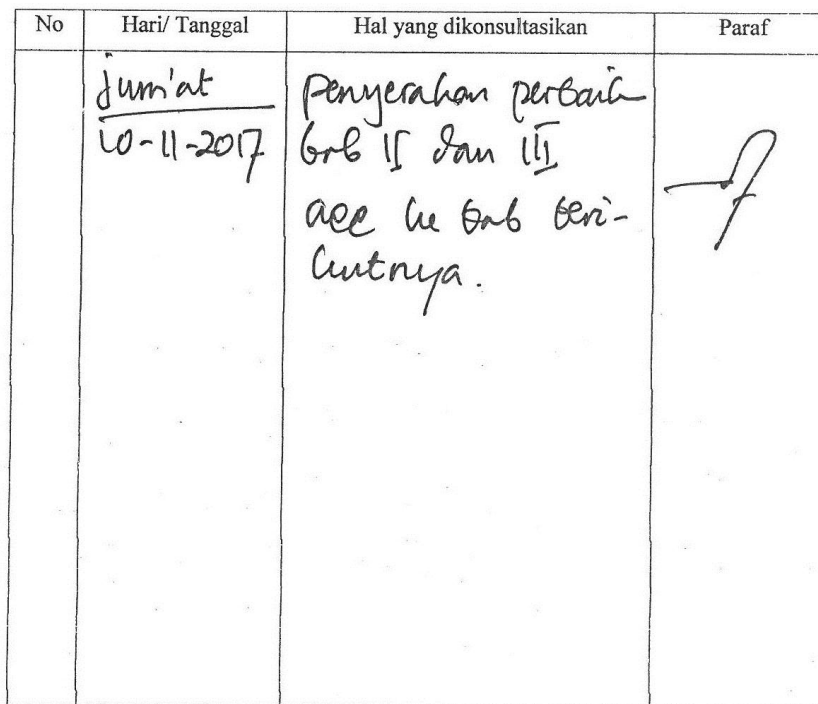 No Hari/ Tanggal Hal yang dikonsultasikan Paraf
Jum'at Penyerahan perbaik
10-11-2017 bab II dan III
acc ke bab beri-
kutnya.